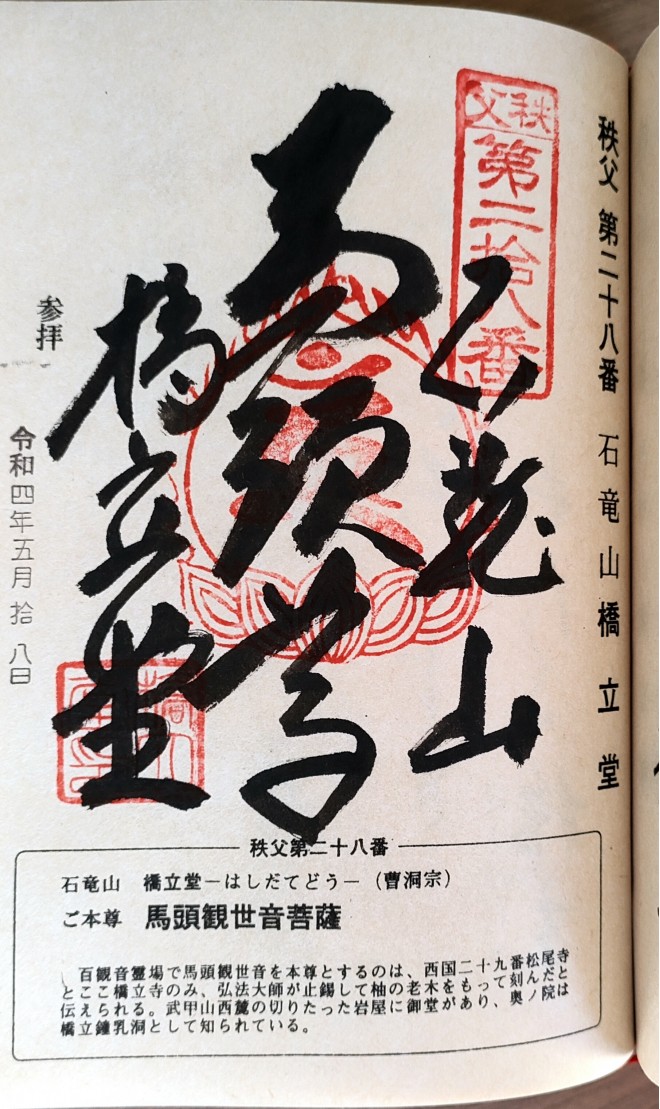 秩父 第二十八番 石竜山橋立堂
秩父
第二拾八番
石龍山
馬頭尊
橋立堂
参拝
令和四年五月拾八日
秩父第二十八番
石竜山 橋立堂－はしだてどう－（曹洞宗）
ご本尊 馬頭観世音菩薩
百観音霊場で馬頭観世音を本尊とするのは、西国二十九番松尾寺
とここ橋立寺のみ、弘法大師が止錫して柚の老木をもって刻んだと
伝えられる。武甲山西麓の切りたった岩屋に御堂があり、奥ノ院は
橋立鍾乳洞として知られている。